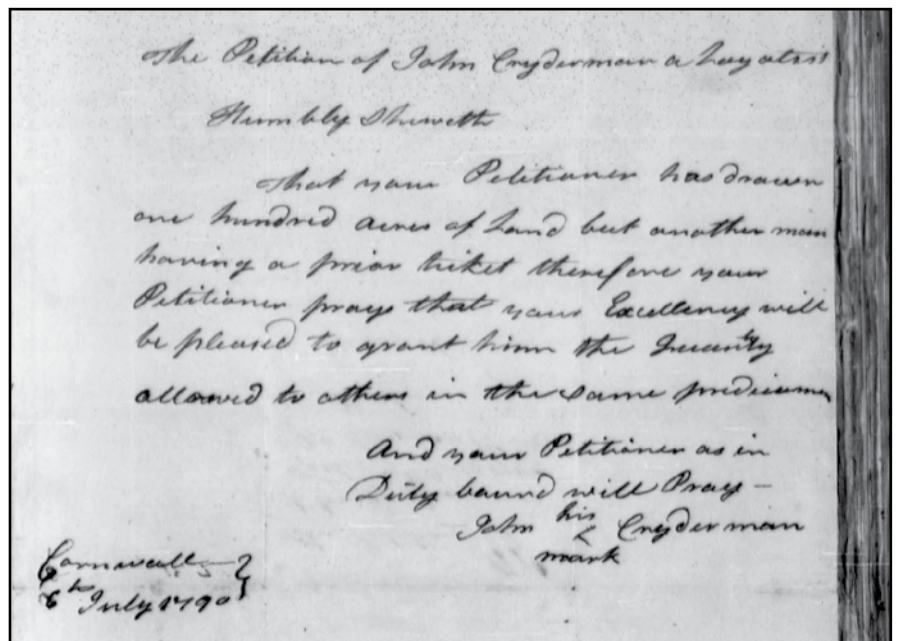 The Petition of John Cryderman a Loyalist
Humbly Sheweth
That your Petitioner has drawn
one hundred acres of Land but another man
having a prior ticket therefore your
Petitioner prays that your Excellency will
be pleased to grant him the Quantity
allowed to others in the same predicamen
And your Petitioner as in
Duty bound will Pray –
John his Cryderman
mark
Cornwall
6th July 1790